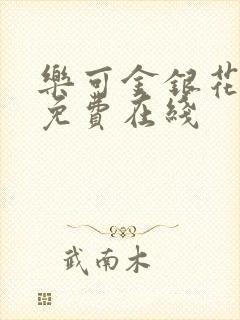 樂可金銀花
免費在綫
武南木